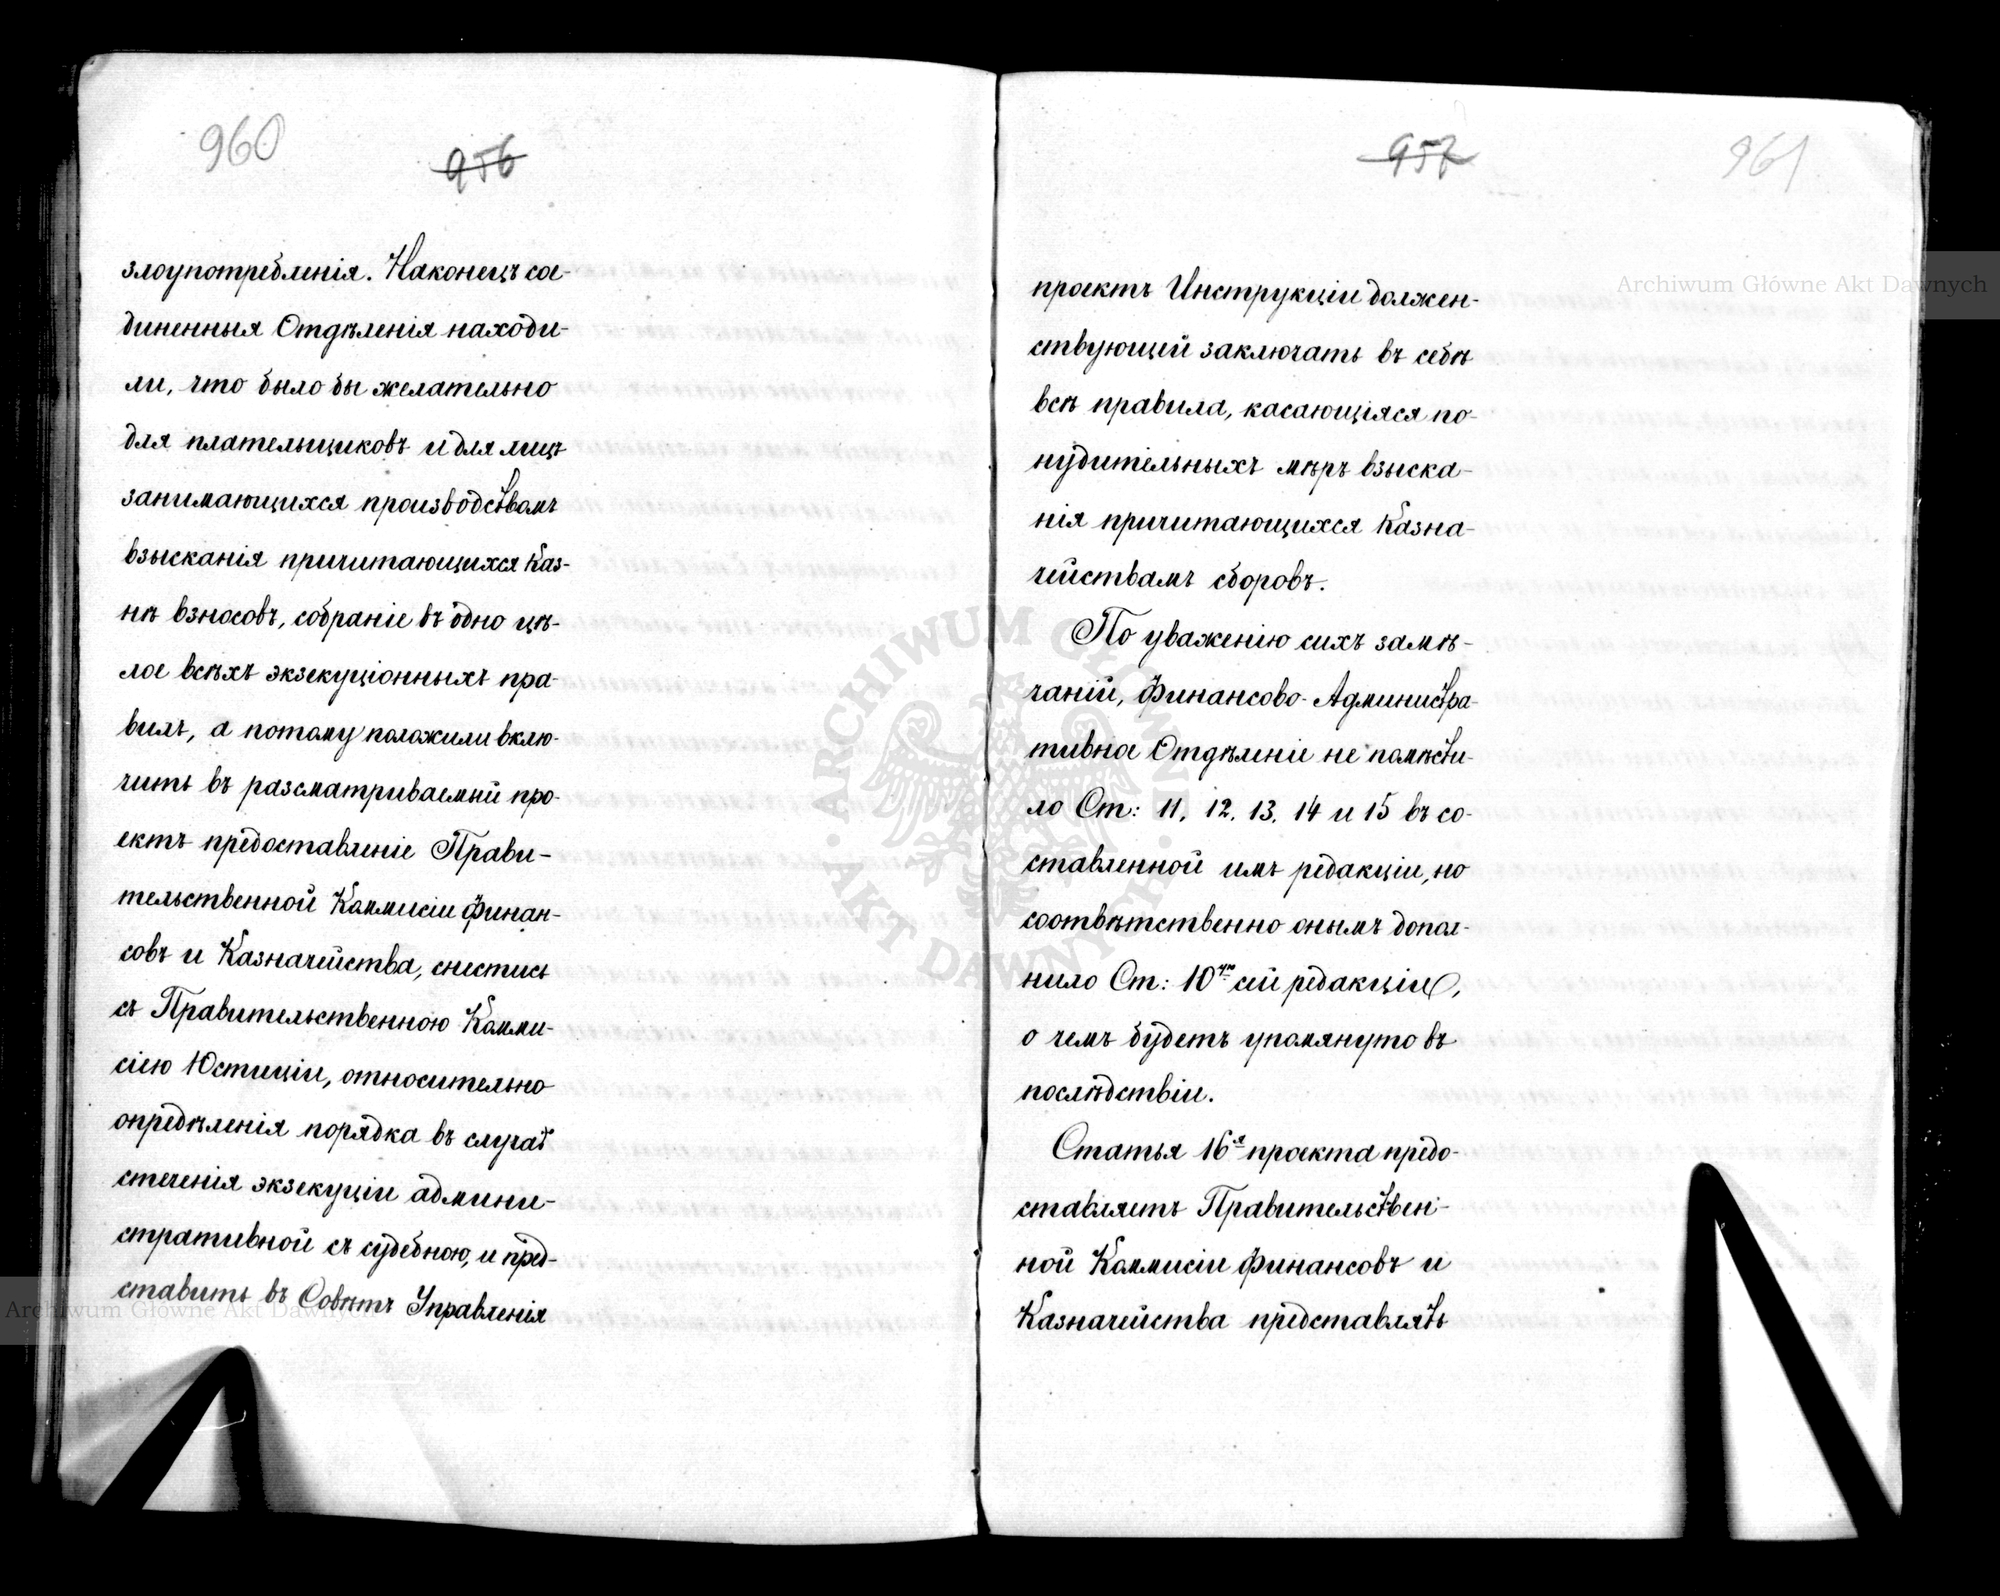 960
956
злоупотребленія. Наконецъ сое-
диненныя Отдѣленія находи-
ли, что было бы желательно
для плательщиковъ и для лицъ
занимающихся производствомъ
взысканія причитающихся Каз-
нѣ взносовъ, собраніе въ одно цѣ-
лое всѣхъ экзекуціонныхъ пра-
вилъ, а потому положили вклю-
чить въ разсматриваемый про-
ектъ предоставленіе Прави-
тельственной Коммисіи Финан-
совъ и Казначейства, снестись
съ Правительственною Комми-
сіею Юстиціи, относительно
опредѣленія порядка въ случаѣ
стеченія экзекуціи админи-
стративной съ судебною, и пред-
ставить въ Совѣтъ Управленія
957
961
проектъ Инструкціи должен-
ствующій заключать въ себѣ
всѣ правила, касающіяся по-
нудительныхъ мѣръ взыска-
нія причитающихся Казна-
чействамъ сборовъ.
По уваженію сихъ замѣ-
чаній, Финансово-Администра-
тивное Отдѣленіе не помѣсти-
ло Ст: 11, 12, 13, 14 и 15 въ со-
ставленной имъ редакціи, но
соотвѣтственно онымъ допол-
нило Ст: 10ую сей редакціи,
о чемъ будетъ упомянуто въ
послѣдствіи.
Статья 16я проекта предо-
ставляетъ Правительствен-
ной Коммисіи Финансовъ и
Казначейства представлять
Archiwum Główne Akt Dawnych
Archiwum Główne Akt Dawnych
ARCHIWUM GŁÓWNE · AKT DAWNYCH ·